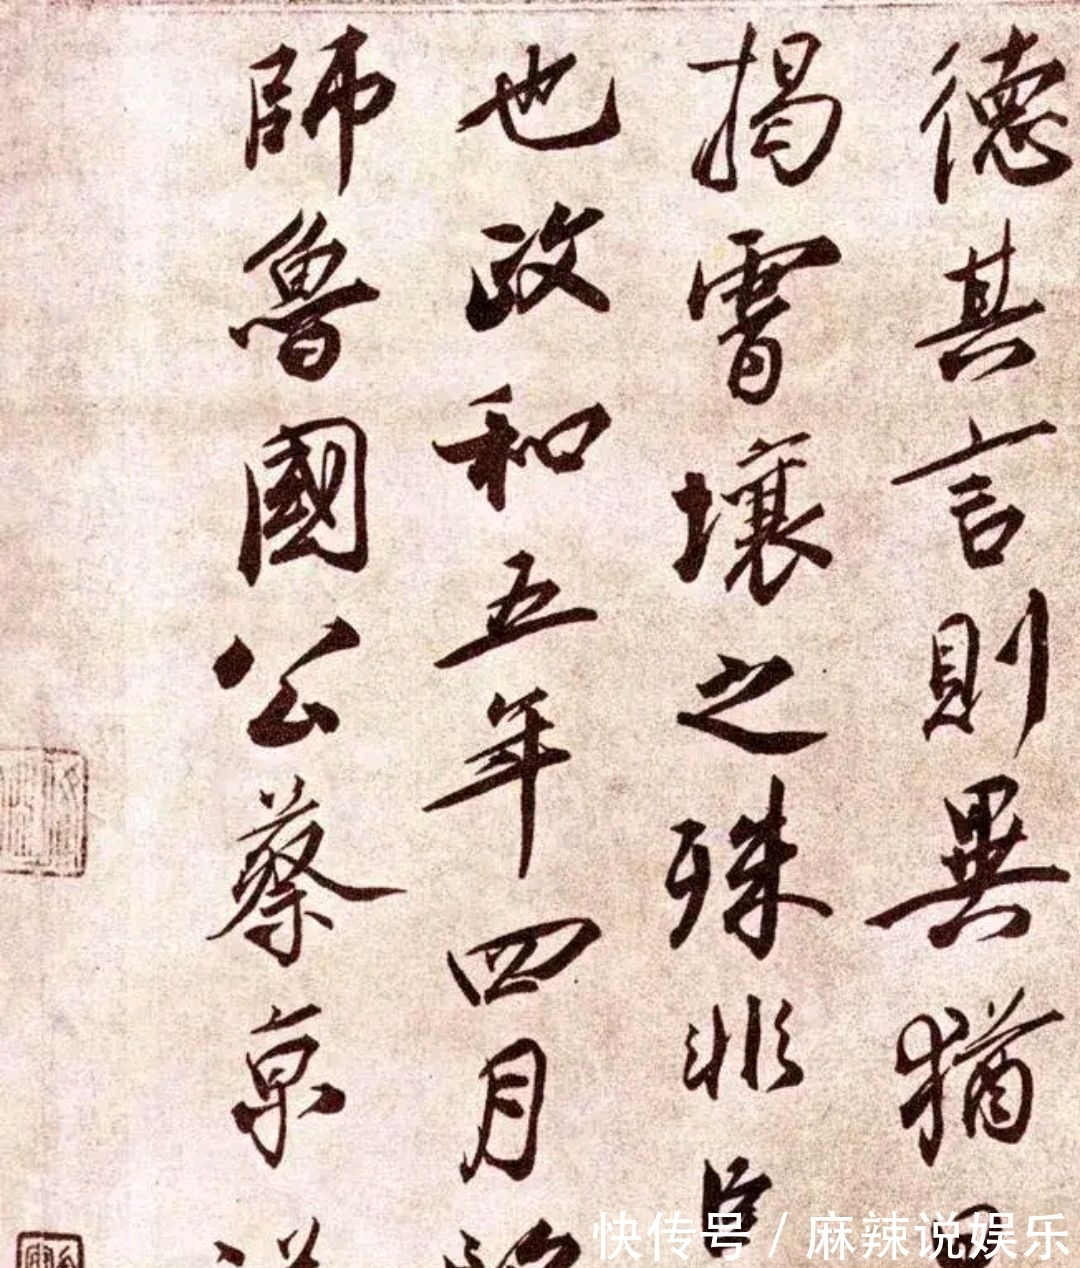 德其言則異猶
揭霄壤之殊非臣
也政和五年四月
師魯國公蔡京
快传号 / 麻辣说娱乐